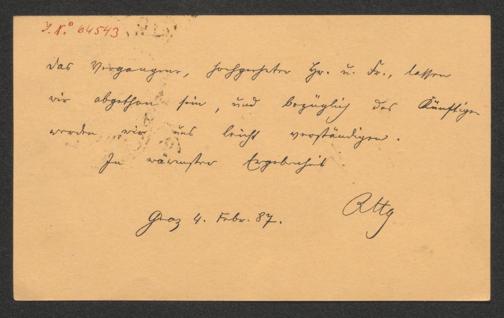 J. N.° 64543
Das Vergangene, hochgeehrter Hr. u. Fr., lassen
wir abgethan sein, und bezüglich des Künftigen
werden wir uns leicht verständigen.
In wärmster Ergebenheit
Graz 4. Febr. 87.